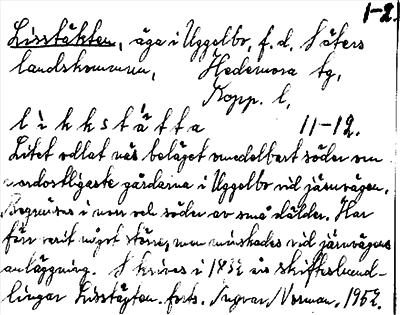 1-2.
Lisstäkten, äga i Uggelbo, f.d. Säters
landskommun, Hedemora tg,
Kopp. l,
likkstätta 11-12.
Litet odlat näs beläget omedelbart söder om
nordostligaste gårdarna i Uggelbo vid järnvägen.
Begränsas i norr och söder av små dälder. Har
förr varit något större, men minskades vid järnvägens
anläggning. Skrives i 1832 års skifteshand-
lingar Lisstägten. forts. Ingvar Norman, 1952.